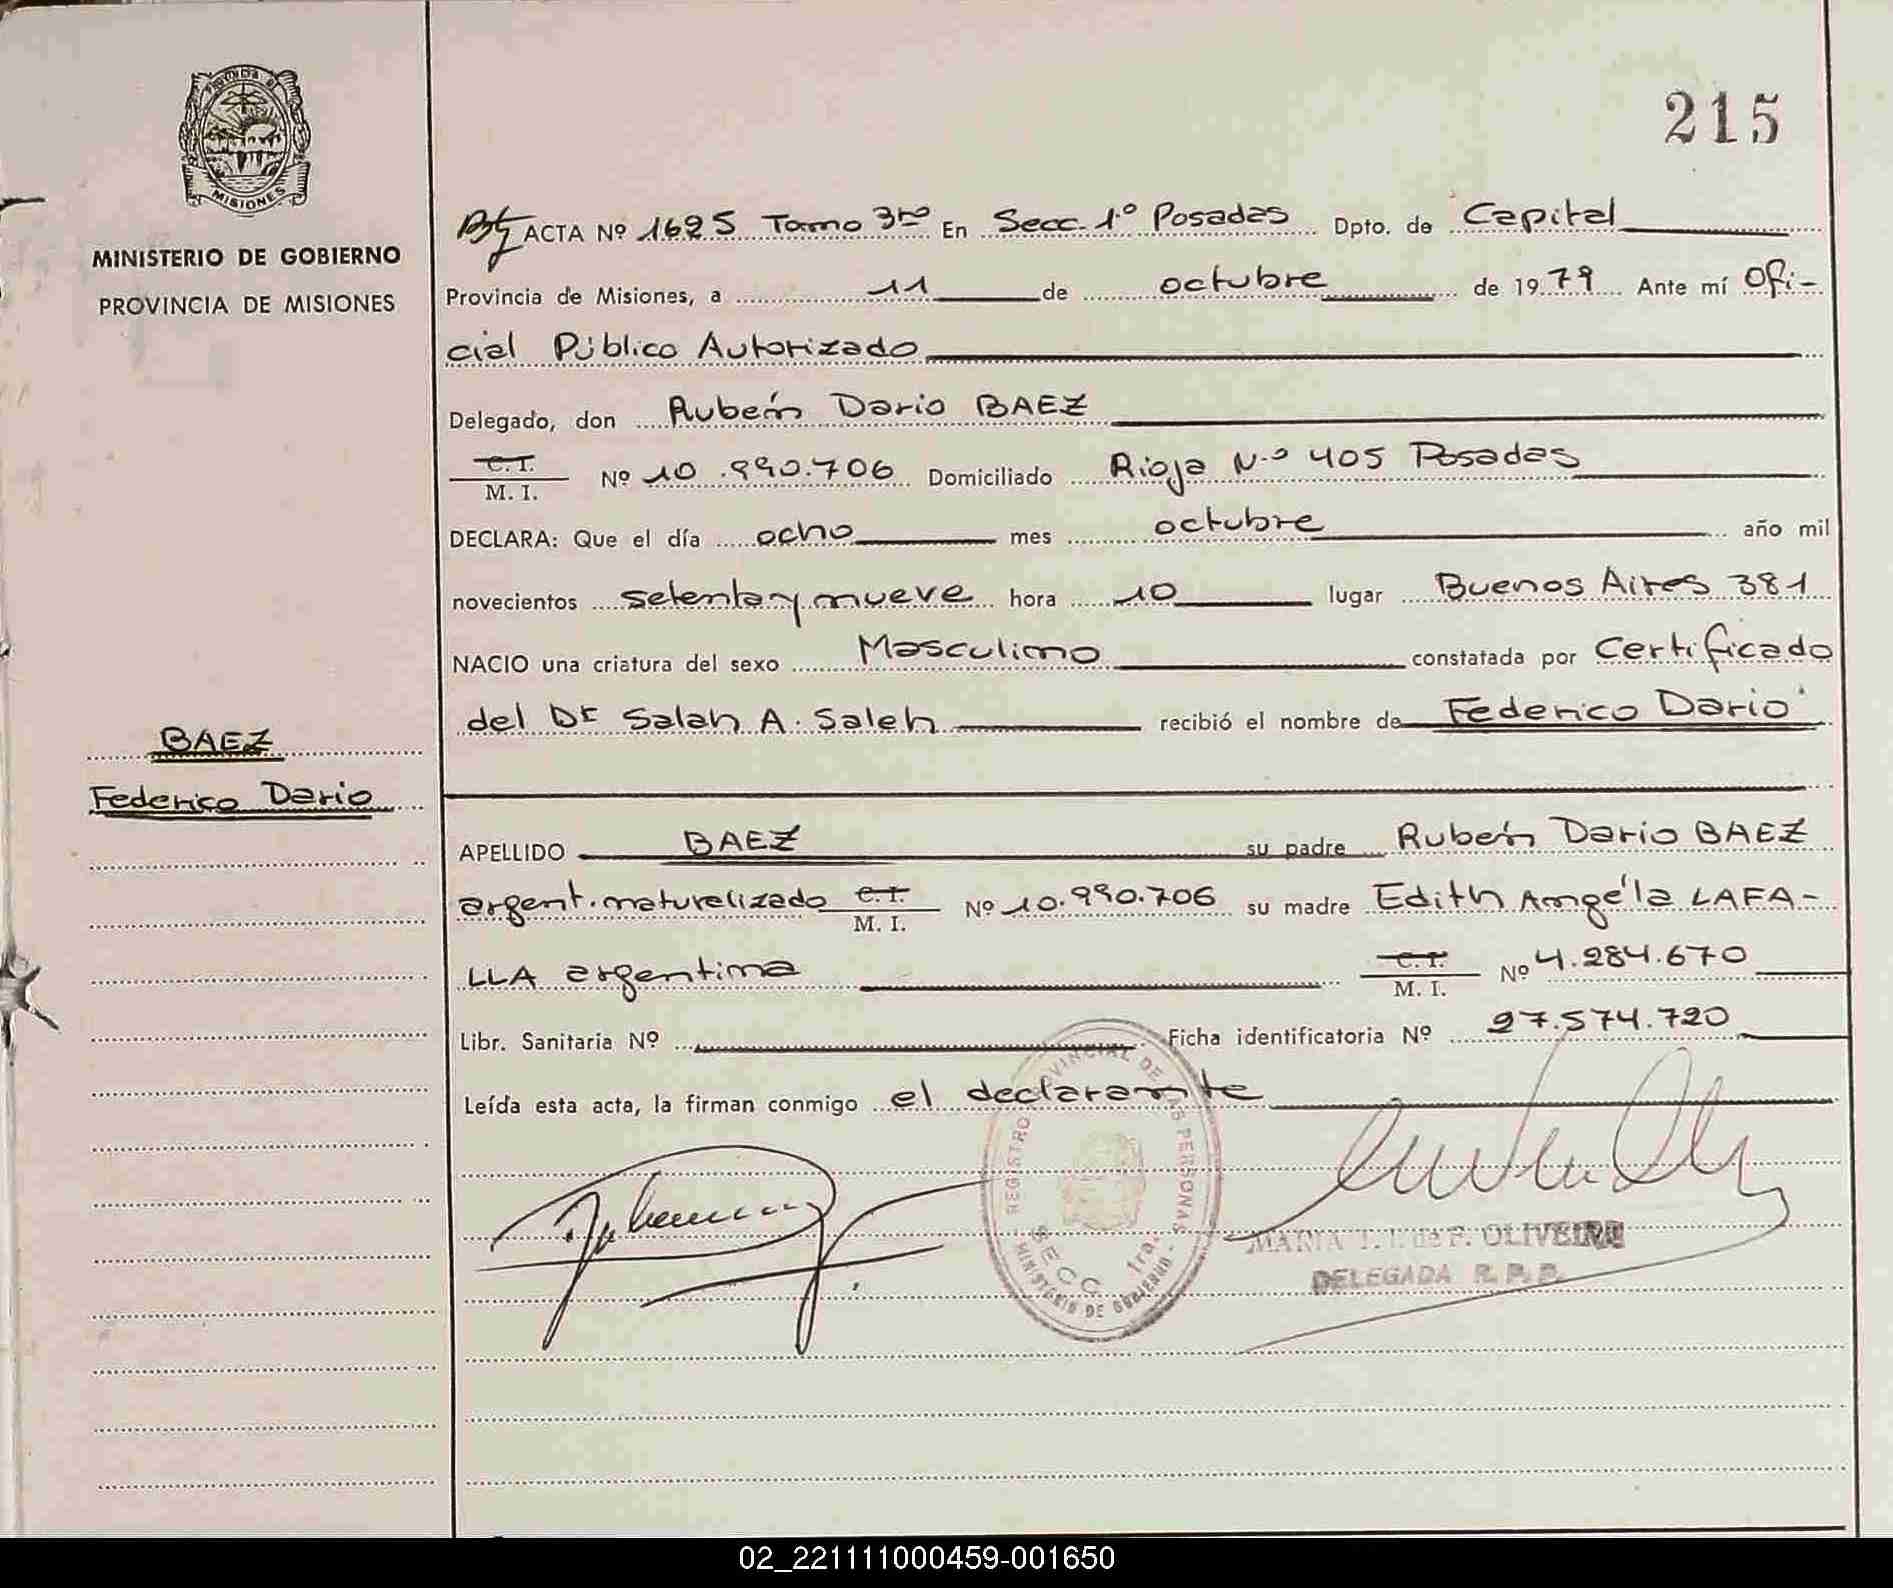 PROVINCIA DE
MISIONES
MINISTERIO DE GOBIERNO
PROVINCIA DE MISIONES
BAEZ
Federico Dario
215
ACTA Nº 1625 Tomo 3ro En Secc. 1º Posadas Dpto. de Capital
Provincia de Misiones, a 11 de octubre de 1979 Ante mí Ofi-
cial Público Autorizado
Delegado, don Rubén Dario BAEZ
C.I.
M. I. Nº 10.990.706 Domiciliado Rioja Nº 405 Posadas
DECLARA: Que el día ocho mes octubre año mil
novecientos setenta y nueve hora 10 lugar Buenos Aires 381
NACIO una criatura del sexo Masculino constatada por Certificado
del Dr Salah A. Saleh recibió el nombre de Federico Dario
APELLIDO BAEZ su padre Rubén Dario BAEZ
argent. naturalizado C.I.
M. I. Nº 10.990.706 su madre Edith Angéla LAFA-
LLA argentina C.I.
M. I. Nº 4.284.670
Libr. Sanitaria Nº Ficha identificatoria Nº 27.574.720
Leída esta acta, la firman conmigo el declarante
REGISTRO PROVINCIAL DE LAS PERSONAS
SECC. 1ra.
MINISTERIO DE GOBIERNO
MARIA T. I. de F. OLIVEIRA
DELEGADA R. P. P.
02_221111000459-001650